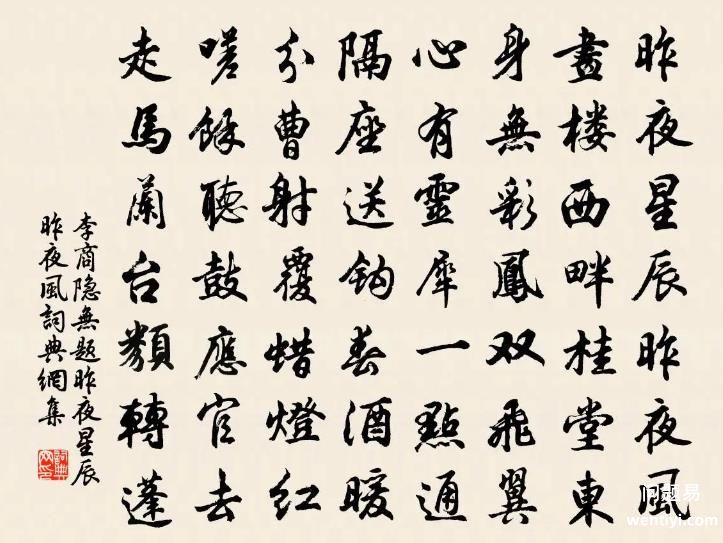 昨夜星辰昨夜風
畫楼西畔桂堂東
身無彩鳳双飛翼
心有靈犀一點通
隔座送鈎春酒暖
分曹射覆蜡燈紅
嗟餘聽鼓應官去
走馬蘭台類轉蓬
李商隐無題昨夜星辰
昨夜風詞典網集
问题易
wentiyi.com